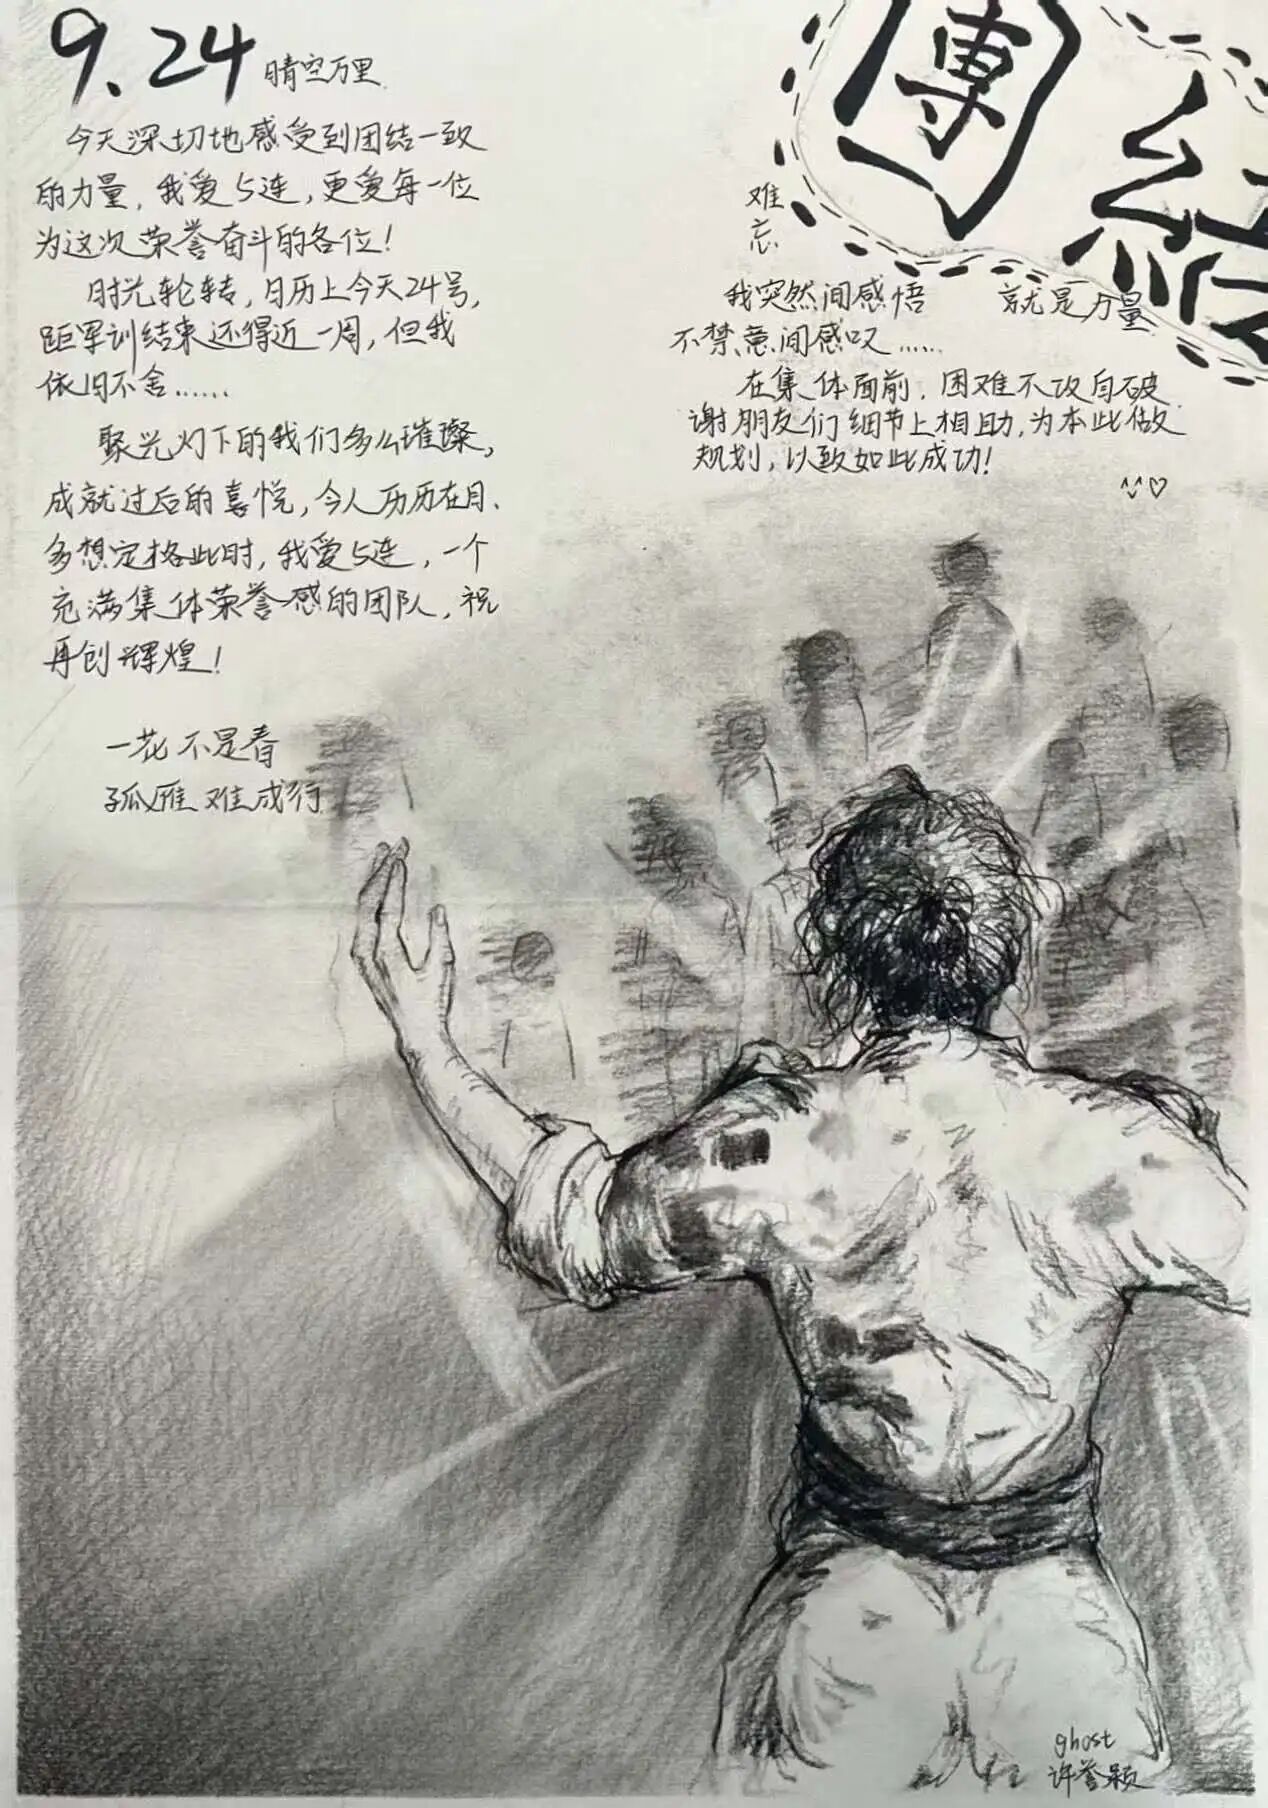 9.24 晴空万里
今天深切地感受到团结一致
的力量，我爱5连，更爱每一位
为这次荣誉奋斗的各位！
时光轮转，日历上今天24号，
距军训结束还得近一周，但我
依旧不舍……
聚光灯下的我们多么璀璨，
成就过后的喜悦，令人历历在目、
多想定格此时，我爱5连，一个
充满集体荣誉感的团队，祝
再创辉煌！
一花不是春
孤雁难成行
團結
难
忘
我突然间感悟 就是力量
不禁意间感叹……
在集体面前，困难不攻自破
谢朋友们细节上相助，为本此做
规划，以致如此成功！
ghost
许誉颖